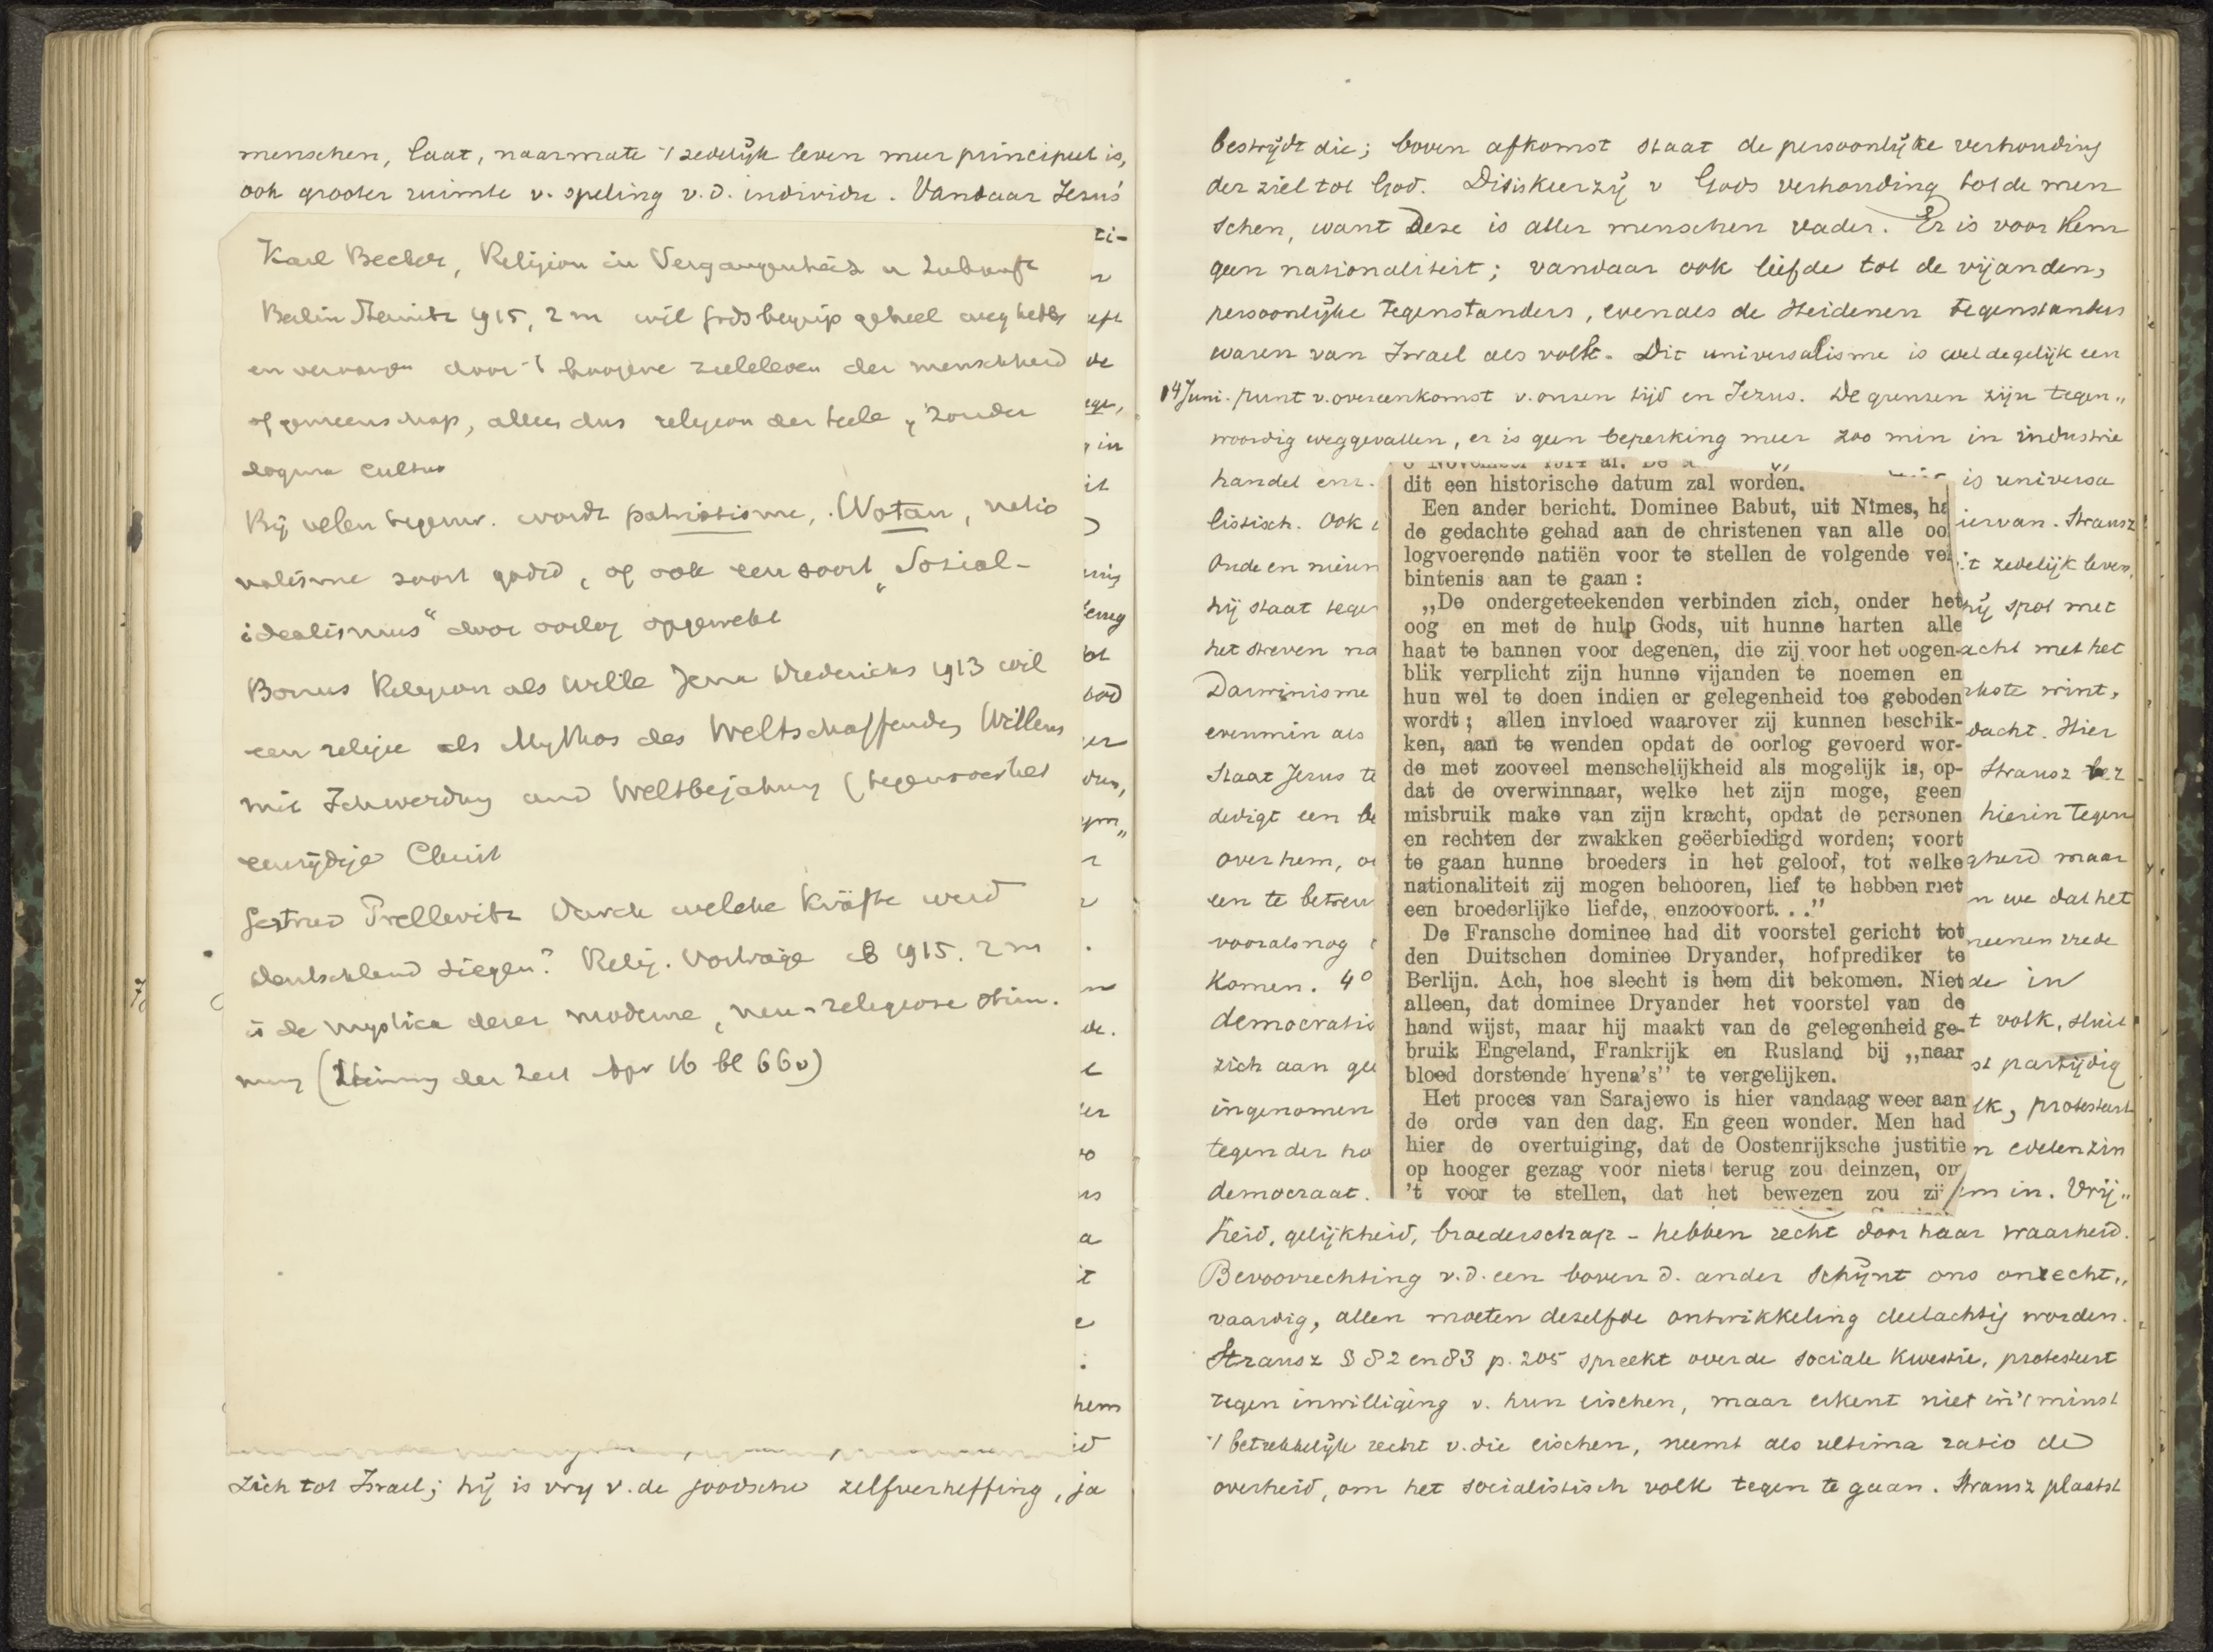 menschen, laat, naarmate 't zedelijk leven meer principieel is,
ook grooter ruimte v. speling v.d. individu. Vandaar Jezus'
Karl Becker, Religion in Vergangenheit u Zukunft
Berlin Steinitz 1915, 2 m wil godsbegrip geheel weg hebben
en vervangen door 't hoogere zieleleven der menschheid
of gemeenschap, alles dus religion der Seele, zonder
dogma cultus
Bij velen tegenw. wordt patriotisme, Wotan, natio
nalisme soort godsd, of ook een soort „Sozial-
idealismus" door oorlog opgewekt
Bonus Religion als Wille Jena Diederichs 1913 wil
een religie als Mythos des Weltschaffenden Willens
mit Ichwerdung und Weltbejahung (tegenover het
eenzijdige Christ
Gertrud Prellwitz Durch welche Kräfte wird
Deutschland siegen? Relig. Vorträge 1915. 2 m
is de mystica dezer moderne, neu-religiose Stim.
mung (Stimmen der Zeit Apr 16 bl 66v)
zich tot Israel; hij is vry v. de joodsche zelfverheffing, ja
bestrijdt die; boven afkomst staat de persoonlijke verhouding
der ziel tot God. Dit is keerzij v Gods verhouding tot de men
schen, want Deze is aller menschen vader. Er is voor Hem
geen nationaliteit; vandaar ook liefde tot de vijanden,
persoonlijke tegenstanders, evenals de Heidenen tegenstanders
waren van Israel als volk. Dit universalisme is wel degelijk een
14 Juni. punt v. overeenkomst v. onzen tijd en Jezus. De grenzen zijn tegen„
woordig weggevallen, er is geen beperking meer zoo min in industrie
handel enz. is universa
listisch. Ook iervan. Strausz
Oude en nieuw 't zedelijk leven,
hij staat tege hij spot met
het streven na acht met het
Darwinisme rkste wint,
evenmin als dacht. Hier
staat Jezus te Strausz ver
dedigt een hierin tegen
over hem, gheid maar
een te betreu n we dat het
vooralsnog meenen vrede
komen. 4° de in
democratis t volk, sluit
zich aan st partijdig
ingenomen lk, protesteert
tegen der ho n edelen zin
democraat. m in. Vrij„
dit een historische datum zal worden.
Een ander bericht. Dominee Babut, uit Nîmes, ha
de gedachte gehad aan de christenen van alle oo
logvoerende natiën voor te stellen de volgende ver
bintenis aan te gaan:
„De ondergeteekenden verbinden zich, onder het
oog en met de hulp Gods, uit hunne harten alle
haat te bannen voor degenen, die zij voor het oogen-
blik verplicht zijn hunne vijanden te noemen en
hun wel te doen indien er gelegenheid toe geboden
wordt; allen invloed waarover zij kunnen beschik-
ken, aan te wenden opdat de oorlog gevoerd wor-
de met zooveel menschelijkheid als mogelijk is, op-
dat de overwinnaar, welke het zijn moge, geen
misbruik make van zijn kracht, opdat de personen
en rechten der zwakken geëerbiedigd worden; voort
te gaan hunne broeders in het geloof, tot welke
nationaliteit zij mogen behooren, lief te hebben met
een broederlijke liefde, enzoovoort. . ."
De Fransche dominee had dit voorstel gericht tot
den Duitschen dominee Dryander, hofprediker te
Berlijn. Ach, hoe slecht is hem dit bekomen. Niet
alleen, dat dominee Dryander het voorstel van de
hand wijst, maar hij maakt van de gelegenheid ge-
bruik Engeland, Frankrijk en Rusland bij „naar
bloed dorstende hyena's" te vergelijken.
Het proces van Sarajewo is hier vandaag weer aan
de orde van den dag. En geen wonder. Men had
hier de overtuiging, dat de Oostenrijksche justitie
op hooger gezag voor niets terug zou deinzen, om
't voor te stellen, dat het bewezen zou zij
heid, gelijkheid, broederschap – hebben recht door haar waarheid.
Bevoorrechting v.d. een boven d. ander schijnt ons onrecht„
vaardig, allen moeten dezelfde ontwikkeling deelachtig worden.
Strausz § 82 en 83 p. 205 spreekt over de sociale kwestie, protesteert
tegen inwilliging v. hun eischen, maar erkent niet in 't minst
't betrekkelijk recht v. die eischen, neemt als ultima ratio de
overheid, om het socialistisch volk tegen te gaan. Strausz plaatst